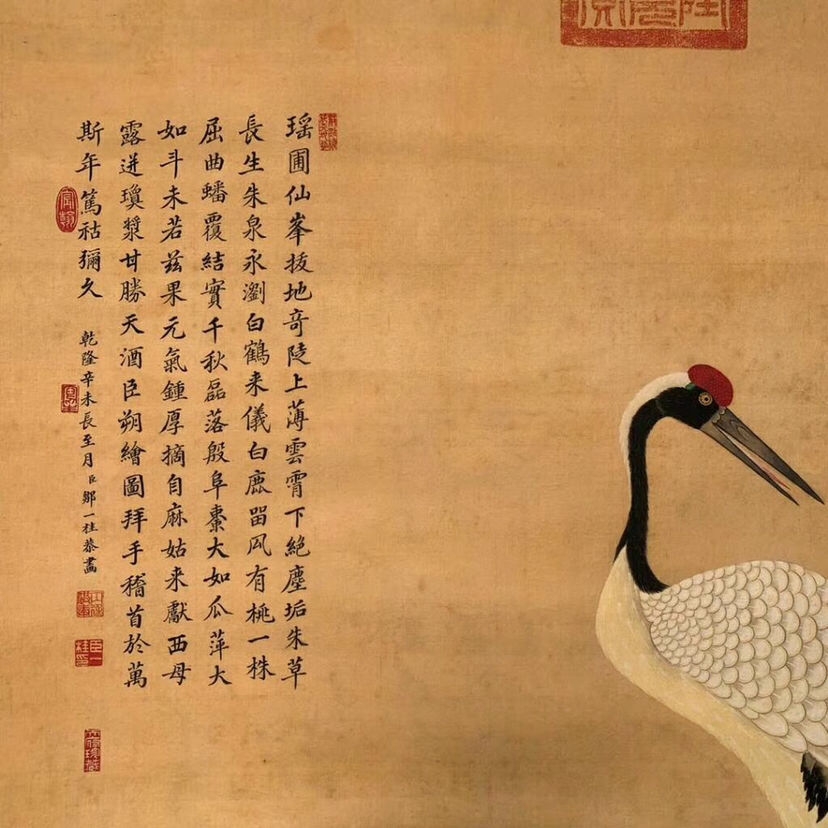 瑶圃仙峯拔地奇陡上薄雲霄下絶塵垢朱草
長生朱泉永瀏白鶴来儀白鹿畱凨有桃一株
屈曲蟠覆結實千秋磊落殷阜棗大如瓜萍大
如斗未若兹果元氣鍾厚摘自麻姑来獻西母
露迸瓊漿甘勝天酒臣朔繪圖拜手稽首於萬
斯年篤祜彌久 乾隆辛未長至月臣鄒一桂恭畫
臣一桂印